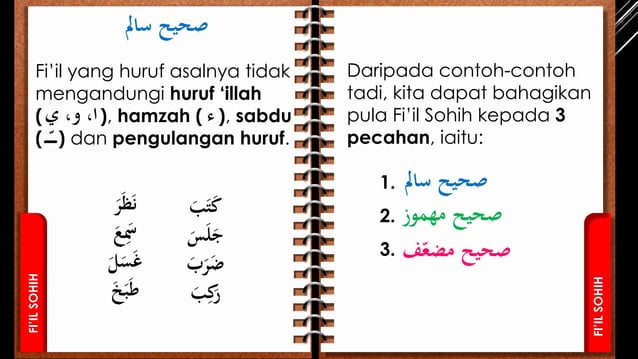 صحيح سالم
Fi’il yang huruf asalnya tidak
mengandungi huruf ‘illah
(ا، و، ي), hamzah ( ء ), sabdu
(ـّ) dan pengulangan huruf.
كَتَبَ نَظَرَ
جَلَسَ سَمِعَ
ضَرَبَ غَسَلَ
رَكِبَ طَبَخَ
FI’IL SOHIH
Daripada contoh-contoh
tadi, kita dapat bahagikan
pula Fi’il Sohih kepada 3
pecahan, iaitu:
1. صحيح سالم
2. صحيح مهموز
3. صحيح مضعّف
FI’IL SOHIH